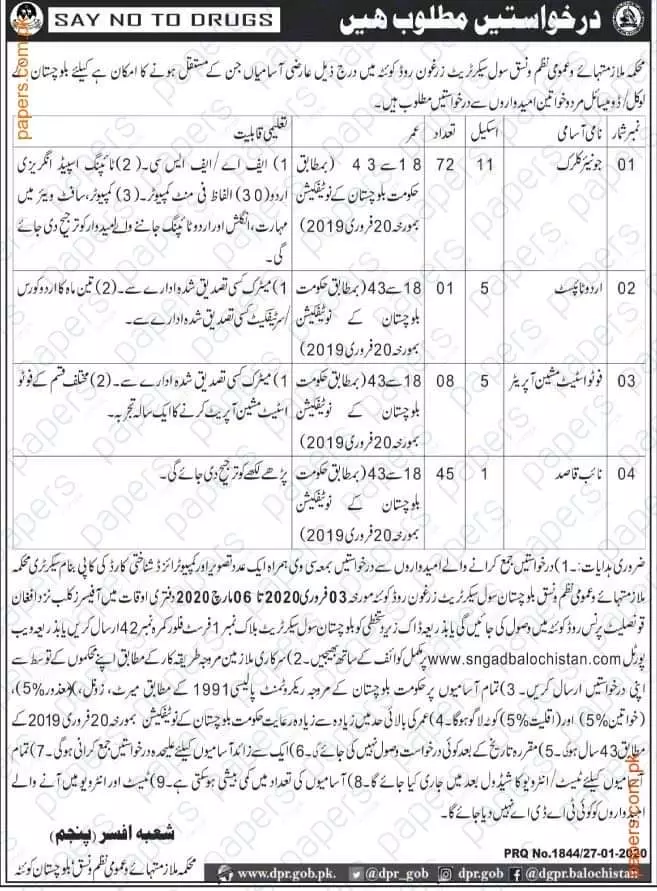 SAY NO TO DRUGS
درخواستیں مطلوب ھیں
محکمہ ملازمتہائے و عمومی نظم و نسق سول سیکرٹریٹ زرغون روڈ کوئٹہ میں درج ذیل عارضی آسامیاں جن کے مستقلی ہونے کا امکان ہے کیلئے بلوچستان کے
لوکل/ڈومیسائل مرد و خواتین امیدواروں سے درخواستیں مطلوب ہیں۔
نمبر شمار نامی آسامی اسکیل تعداد عمر تعلیمی قابلیت
01 جونیئر کلرک 11 72 18 سے 43 (بمطابق 1) ایف اے/ایف ایس سی۔ 2) ٹائپنگ اسپیڈ انگریزی
حکومت بلوچستان کے نوٹیفکیشن اردو (30) الفاظ فی منٹ کمپیوٹر۔ (3) کمپیوٹر، سافٹ ویئر میں
بمورخہ 20 فروری 2019) مہارت، انگلش اور اردو ٹائپنگ جاننے والے امیدوار کو ترجیح دی جائے
گی۔
02 اردو ٹائپسٹ 5 01 18 سے 43 (بمطابق حکومت 1) میٹرک کسی تصدیق شدہ ادارے سے۔ (2) تین ماہ کا اردو کورس
بلوچستان کے نوٹیفکیشن /سرٹیفکیٹ کسی تصدیق شدہ ادارے سے۔
بمورخہ 20 فروری 2019)
03 فوٹو اسٹیٹ مشین آپریٹر 5 08 18 سے 43 (بمطابق حکومت 1) میٹرک کسی تصدیق شدہ ادارے سے۔ (2) مختلف قسم کے فوٹو
بلوچستان کے نوٹیفکیشن اسٹیٹ مشین آپریٹ کرنے کا ایک سالہ تجربہ۔
بمورخہ 20 فروری 2019)
04 نائب قاصد 1 45 18 سے 43 (بمطابق حکومت پڑھے لکھے کو ترجیح دی جائے گی۔
بلوچستان کے نوٹیفکیشن
بمورخہ 20 فروری 2019)
ضروری ہدایات:۔ 1) درخواستیں جمع کرانے والے امیدواروں سے درخواستیں بمعہ سی وی ہمراہ ایک عدد تصویر اور کمپیوٹرائزڈ شناختی کارڈ کی کاپی بنام سیکرٹری محکمہ
ملازمتہائے و عمومی نظم و نسق بلوچستان سول سیکرٹریٹ زرغون روڈ کوئٹہ مورخہ 03 فروری 2020 تا 06 مارچ 2020 دفتری اوقات میں آفیسرز کلب نزد افغان
قونصلیٹ پرنس روڈ کوئٹہ میں وصول کی جائیں گی یا بذریعہ ڈاک زیر دستخطی کو بلوچستان سول سیکرٹریٹ بلاک نمبر 1 فرسٹ فلور کمرہ نمبر 42 ارسال کریں یا بذریعہ ویب
پورٹل www.sngadbalochistan.com پر مکمل کوائف کے ساتھ بھیجیں۔ 2) سرکاری ملازمین مروجہ طریقہ کار کے مطابق اپنے محکموں کے توسط سے
اپنی درخواستیں ارسال کریں۔ 3) تمام آسامیوں پر حکومت بلوچستان کے مروجہ ریکروٹمنٹ پالیسی 1991 کے مطابق میرٹ، زونل، (معذور 5%)،
(خواتین 5%) اور (اقلیت 5%) کوٹہ لاگو ہوگا۔ 4) عمر کی بالائی حد میں زیادہ سے زیادہ رعایت حکومت بلوچستان کے نوٹیفکیشن بمورخہ 20 فروری 2019 کے
مطابق 43 سال ہوگی۔ 5) مقررہ تاریخ کے بعد کوئی درخواست وصول نہیں کی جائے گی۔ 6) ایک سے زائد آسامیوں کیلئے علیحدہ درخواستیں جمع کرانی ہوگی۔ 7) تمام
آسامیوں کیلئے ٹیسٹ/انٹرویو کا شیڈول بعد میں جاری کیا جائے گا۔ 8) آسامیوں کی تعداد میں کمی بیشی ہوسکتی ہے۔ 9) ٹیسٹ اور انٹرویو میں آنے والے
امیدواروں کو کوئی ٹی اے ڈی اے نہیں دیا جائے گا۔
شعبہ افسر (پنجم)
محکمہ ملازمتہائے و عمومی نظم و نسق بلوچستان کوئٹہ
PRQ No.1844/27-01-2020
www.dpr.gob.pk. @dpr_gob @dgpr.balochistan
papers.com.pk
papers.com.pk